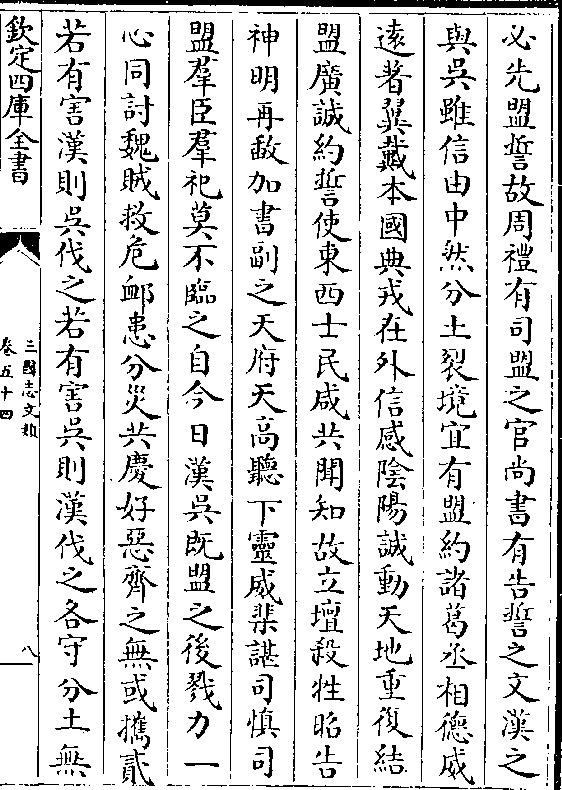 必先盟誓故周禮有司盟之官尚書有告誓之文漢之
與吳雖信由中然分土裂境宜有盟約諸葛丞相德威
逺著翼戴本國典戎在外信感陰陽誠動天地重復結
盟廣誠約誓使東西士民咸共聞知故立壇殺牲昭告
神明再歃加書副之天府天高聽下靈威棐諶司慎司
盟羣臣羣祀莫不臨之自今日漢吳既盟之後戮力一
心同討魏賊救危䘏患分災共慶好惡齊之無或攜貳
若有害漢則吳伐之若有害吳則漢伐之各守分土無
欽定四庫全書
三國志文類
卷五十四
八